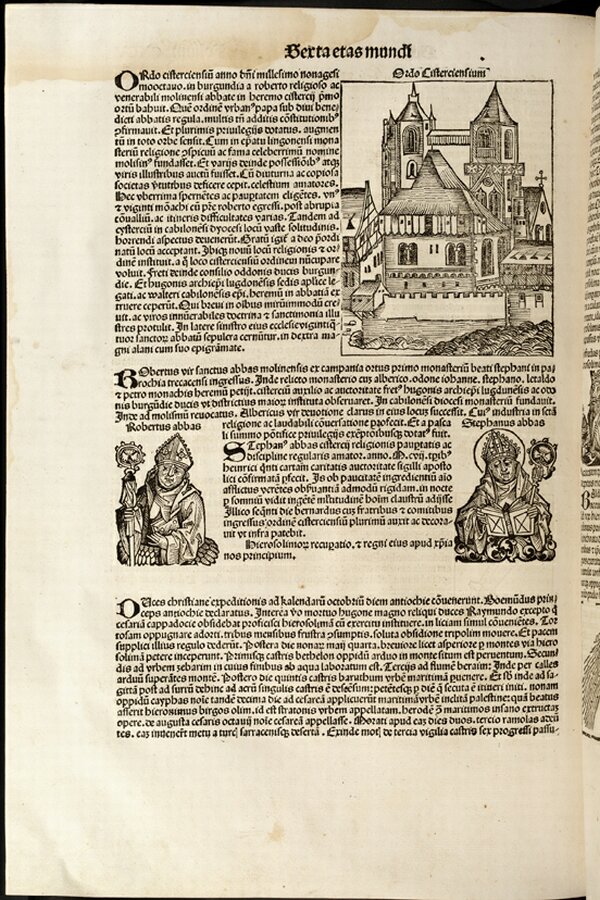 Sexta etas mundi
Ordo Cisterciensium
ORdo cisterciensiũ anno dñi millesimo nonagesi
mooctauo. in burgundia a roberto religioso ac
venerabili molinensi abbate in heremo cistercij pmo
ortũ habuit. Quẽ ordinẽ vrban⁹ papa sub diui bene
dicti abbatis regula. multis tñ additis cõstitutionib⁹
ꝯfirmauit. Et plurimis priuilegijs dotatus. augmen
tũ in toto orbe sensit. Cum in epatu lingonensi mona
steriũ religione ꝯspicuũ ac fama celeberrimũ nomine
molism⁹ fundasset. Et varijs deinde possessiõib⁹ atqꝫ
viris illustribus auctũ fuisset. Cũ diuturna ac copiosa
societas v̾tutibus deficere cepit. celestium amatores.
Hec vberrima spernẽtes ac pauptatem eligẽtes. vn⁹
⁊ viginti mõachi cũ pře roberto egressi. post abrupta
cõualliũ. ac itineris difficultates varias. Tandem ad
cysterciũ in cabilonẽsi dyocesi locũ vaste solitudinis.
horrendi aspectus deuenerũt. Gratũ igit̃ a deo p̃ordi
natũ locũ acceptant. Ibiqꝫ nouũ locũ religionis ⁊ or
dinẽ instituit. a q̃ loco cisterciensiũ ordineꝫ nũcupare
voluit. Freti deinde consilio oddonis ducis burgun
die. Et hugonis archiepi lugdonẽsis sedis aplice le
gati. ac walteri cabilonẽsis epi. heremũ in abbatiã ex
truere ceperũt. Qui breui in oĩbus mirũimmodũ cre
uit. ac viros innũerabiles doctrina ⁊ sanctimonia illu
stres protulit. In latere sinistro eius ecclesie viginti q̃
tuor sanctoꝝ abbatũ sepulcra cernũtur. in dextra ma
gni alani cum suo epigrãmate.
RObertus vir sanctus abbas molinensis ex campania ortus primo monasteriũ beati stephani in pa
rochia trecacensi ingressus. Inde relicto monasterio cuꝫ alberico. odone iohanne. stephano. letaldo
⁊ petro monachis heremũ petijt. cisterciũ auxilio ac auctoritate fret⁹ hugonis archiepi lugdunẽsis ac odo
nis burgũdie ducis vt districtius maioꝝ instituta obseruaret. In cabilonẽsi diocesi monasteriũ fundauit.
Inde ad molismũ reuocatus. Albericus vir deuotione clarus in eius locuꝫ successit. Cui⁹ industria in sctã
Robertus abbas
religione ac laudabili cõuersatione ꝓfecit. Et a pasca
li summo põtifice priuilegijs exẽptõibusqꝫ dotat⁹ fuit.
STephan⁹ abbas cistercij religionis pauptatis ac
discipline regularis amator. anno. M.cvij. tpib⁹
heinrici q̃nti cartam caritatis auctoritate sigilli aposto
lici cõfirmatã ꝓfecit. Is ob paucitatẽ ingredientiũ aío
afflictus verẽtes obseruantiã admodũ rigidam. in nocte
p somniũ vidit ingẽtẽ multitudinẽ hoĩm claustrũ adijsse
Illico secũti die bernardus cuꝫ fratribus ⁊ comitibus
ingressus ordinẽ cisterciensiũ plurimũ auxit ac decora
uit vt infra patebit.
Hierosolimoꝝ recuperatio. ⁊ regni eius apud xp̃ia
nos principium.
Stephanus abbas
DUces christiane expeditionis ad kalendarũ octobriũ diem antiochie cõuenerunt. Boemũdus prin
ceps antiochie declaratus. Interea v̾o mortuo hugone magno reliqui duces Raymundo excepto q̃
cesariã cappadocie obsidebat ꝓficisci hierosolimã cũ exercitu instituere. in liciam simul cõuenietes. Tor
tosam oppugnare adorti. tribus mensibus frustra ꝯsumptis. soluta obsidione tripolim mouere. Et pacem
supplici illius regulo dederũt. Postera die nonaꝝ maij quarta. breuiore licet asperiore p montes via hiero
solimã petere inceperunt. Primisqꝫ castris bethelon oppidũ arduo in monte situm est peruentum. Secun
dis ad vrbem zebarim in cuius finibus ab aqua laboratum est. Tercijs ad flumẽ beraim: Inde per calles
arduũ superãtes montẽ. Postero die quintis castris baruthum vrbẽ maritimã puenere. Et sb inde ad sa
gittã post ad surrũ dehinc ad acrũ singulis castris ẽ desẽsum: petẽtesqꝫ p diẽ q̃ secuta ẽ itineri initi. nonam
oppidũ cayphas noĩe tandẽ decima die ad cesareã applicuerũt maritimã vrbẽ inclitã palestine: quã beatus
asserit hieronimus birgos olim. id est stratonis vrbem appellatam. herodẽ ꝫ maritimos insano extructaꝫ
opere. de augusta cesaris octauij noĩe cesareã appellasse. Morati apud eaꝫ dies duos. tercio ramolas adeũ
tes. eaꝫ inuenert metu a turcꝭ sarracenisqꝫ desertã. Exinde motꝭ de tercia vigilia castris sex progressi passu-